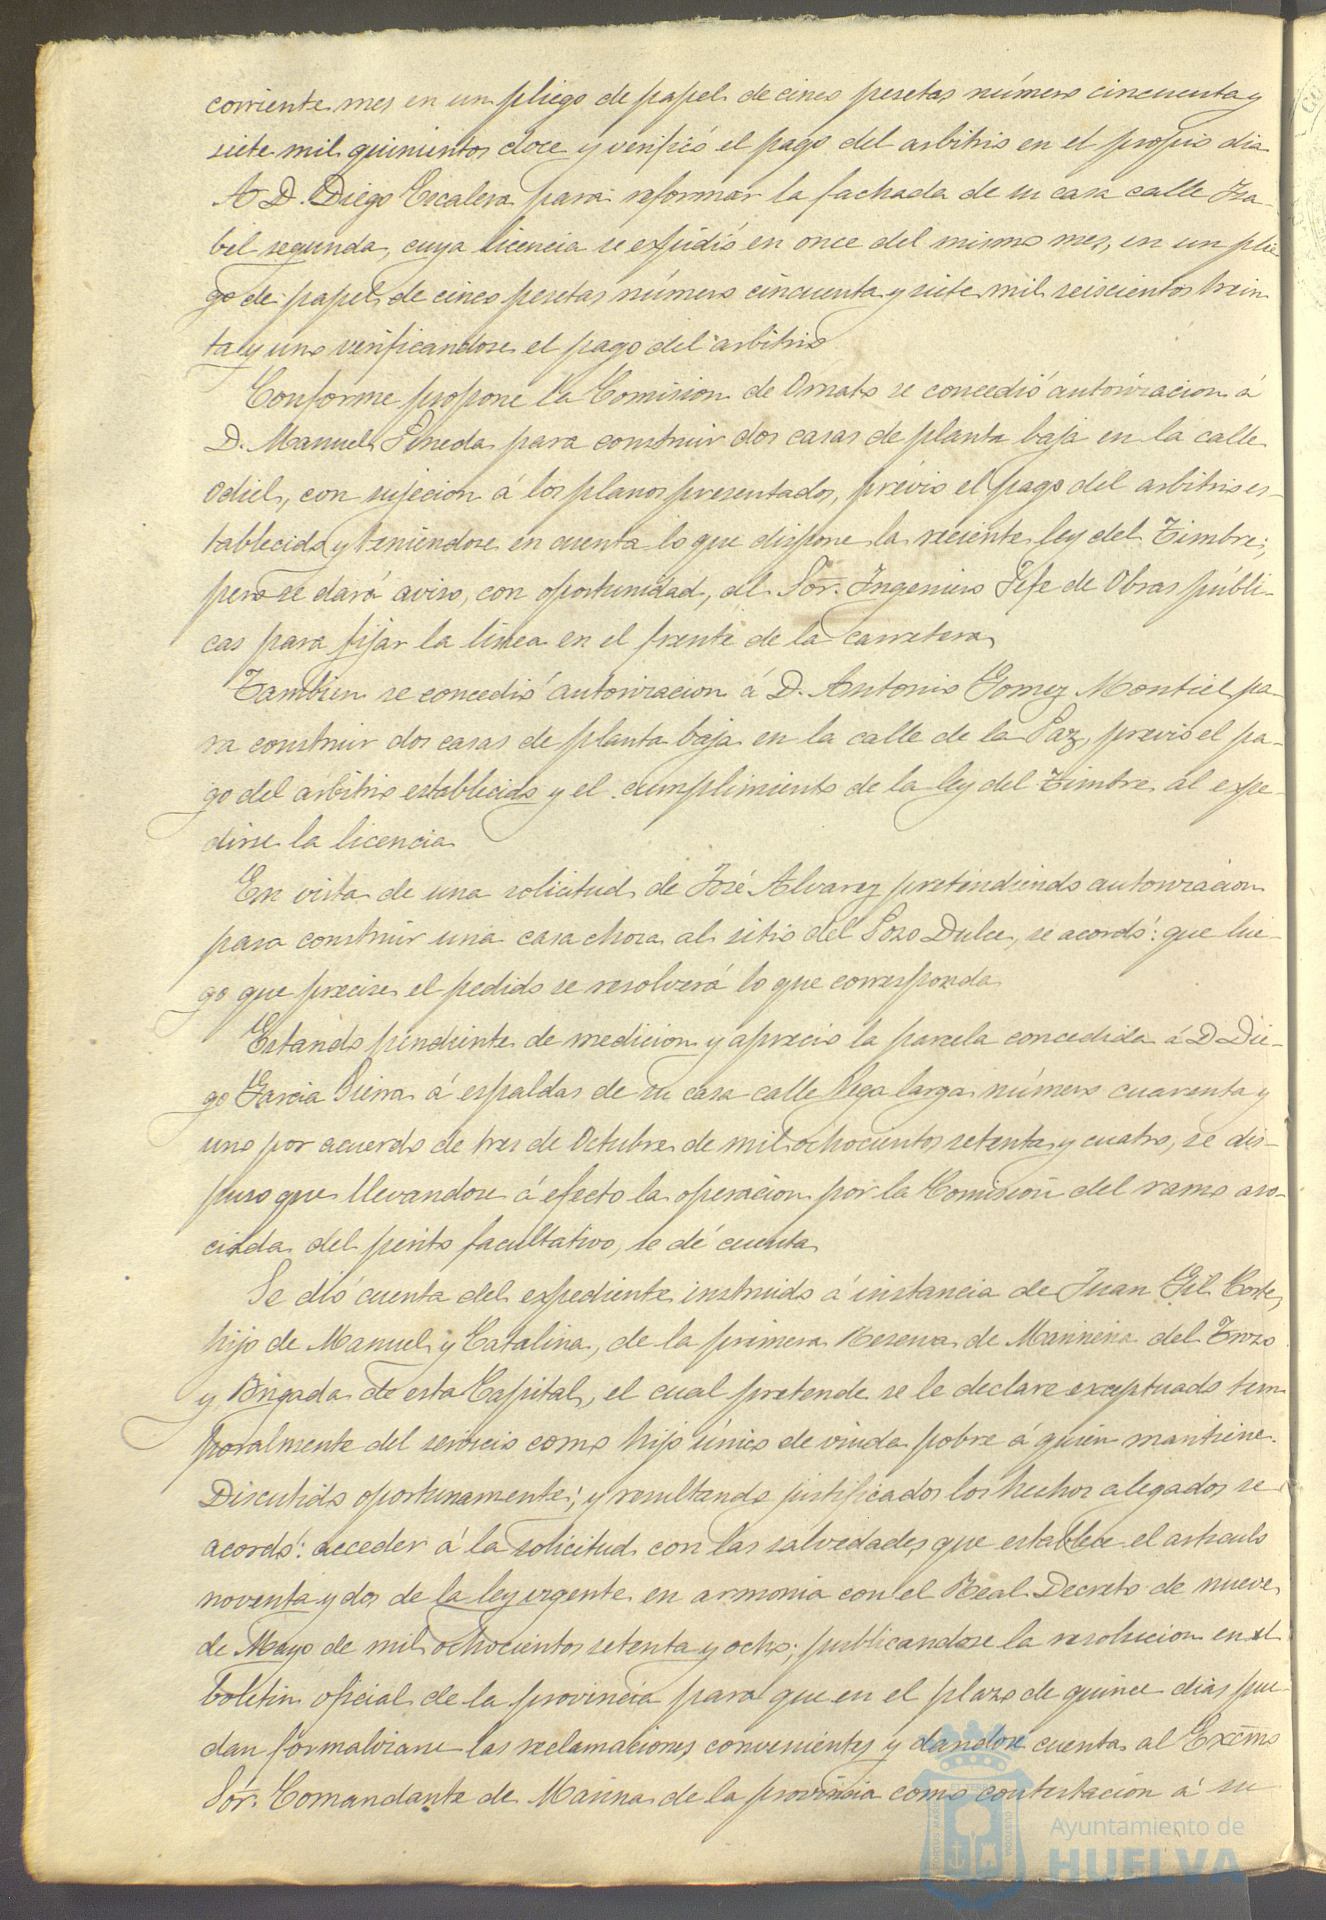 corriente mes en un pliego de papel de cinco pesetas número cincuenta y
siete mil quinientos doce y verificó el pago del arbitrio en el propio dia
A D. Diego Escalera para reformar la fachada de su casa calle Isa-
bel segunda, cuya licencia se expidió en once del mismo mes, en un plie
go de papel de cinco pesetas número cincuenta y siete mil seiscientos trein
ta y uno verificandose el pago del arbitrio
Conforme propone la Comision de Ornato se concedió autorizacion á
D. Manuel Pineda para construir dos casas de planta baja en la calle
Odiel, con sujecion á los planos presentados, prévio el pago del arbitrio es-
tablecido y teniendose en cuenta lo que dispone la reciente ley del Timbre;
pero se dará aviso, con oportunidad, al Sor. Ingeniero Jefe de Obras públi-
cas para fijar la línea en el frente de la carretera
Tambien se concedió autorizacion á D. Antonio Gomez Montiel pa-
ra construir dos casas de planta baja en la calle de la Paz, previo el pa-
go del arbitrio establecido y el cumplimiento de la ley del Timbre al expe-
dirse la licencia
En vista de una solicitud de José Alvarez pretendiendo autorizacion
para construir una casa choza al sitio del Pozo Dulce, se acordó: que lue-
go que precise el pedido se resolverá lo que corresponda
Estando pendiente de medicion y aprecio la parcela concedida á D. Die-
go Garcia Sierra á espaldas de su casa calle Vega larga número cuarenta y
uno por acuerdo de tres de Octubre de mil ochocientos setenta y cuatro, se dis-
puso que llevandose á efecto la operacion por la Comision del ramo aso-
ciada del perito facultativo, se dé cuenta
Se dió cuenta del expediente instruido á instancia de Juan Gil Corte,
hijo de Manuel y Catalina, de la primera Reserva de Marineria del Trozo
y Brigada de esta Capital, el cual pretende se le declare exceptuado tem
poralmente del servicio como hijo único de viuda pobre á quien mantiene.
Discutido oportunamente; y resultando justificados los hechos alegados se
acordó: acceder á la solicitud con las salvedades que establece el articulo
noventa y dos de la ley vigente en armonia con el Real Decreto de nueve
de Mayo de mil ochocientos setenta y ocho; publicandose la resolucion en el
boletin oficial de la provincia para que en el plazo de quince dias pue-
dan formalizarse las reclamaciones convenientes y dandose cuenta al Excmo
Sór. Comandante de Marina de la provincia como contestacion á su
Ayuntamiento de
HUELVA